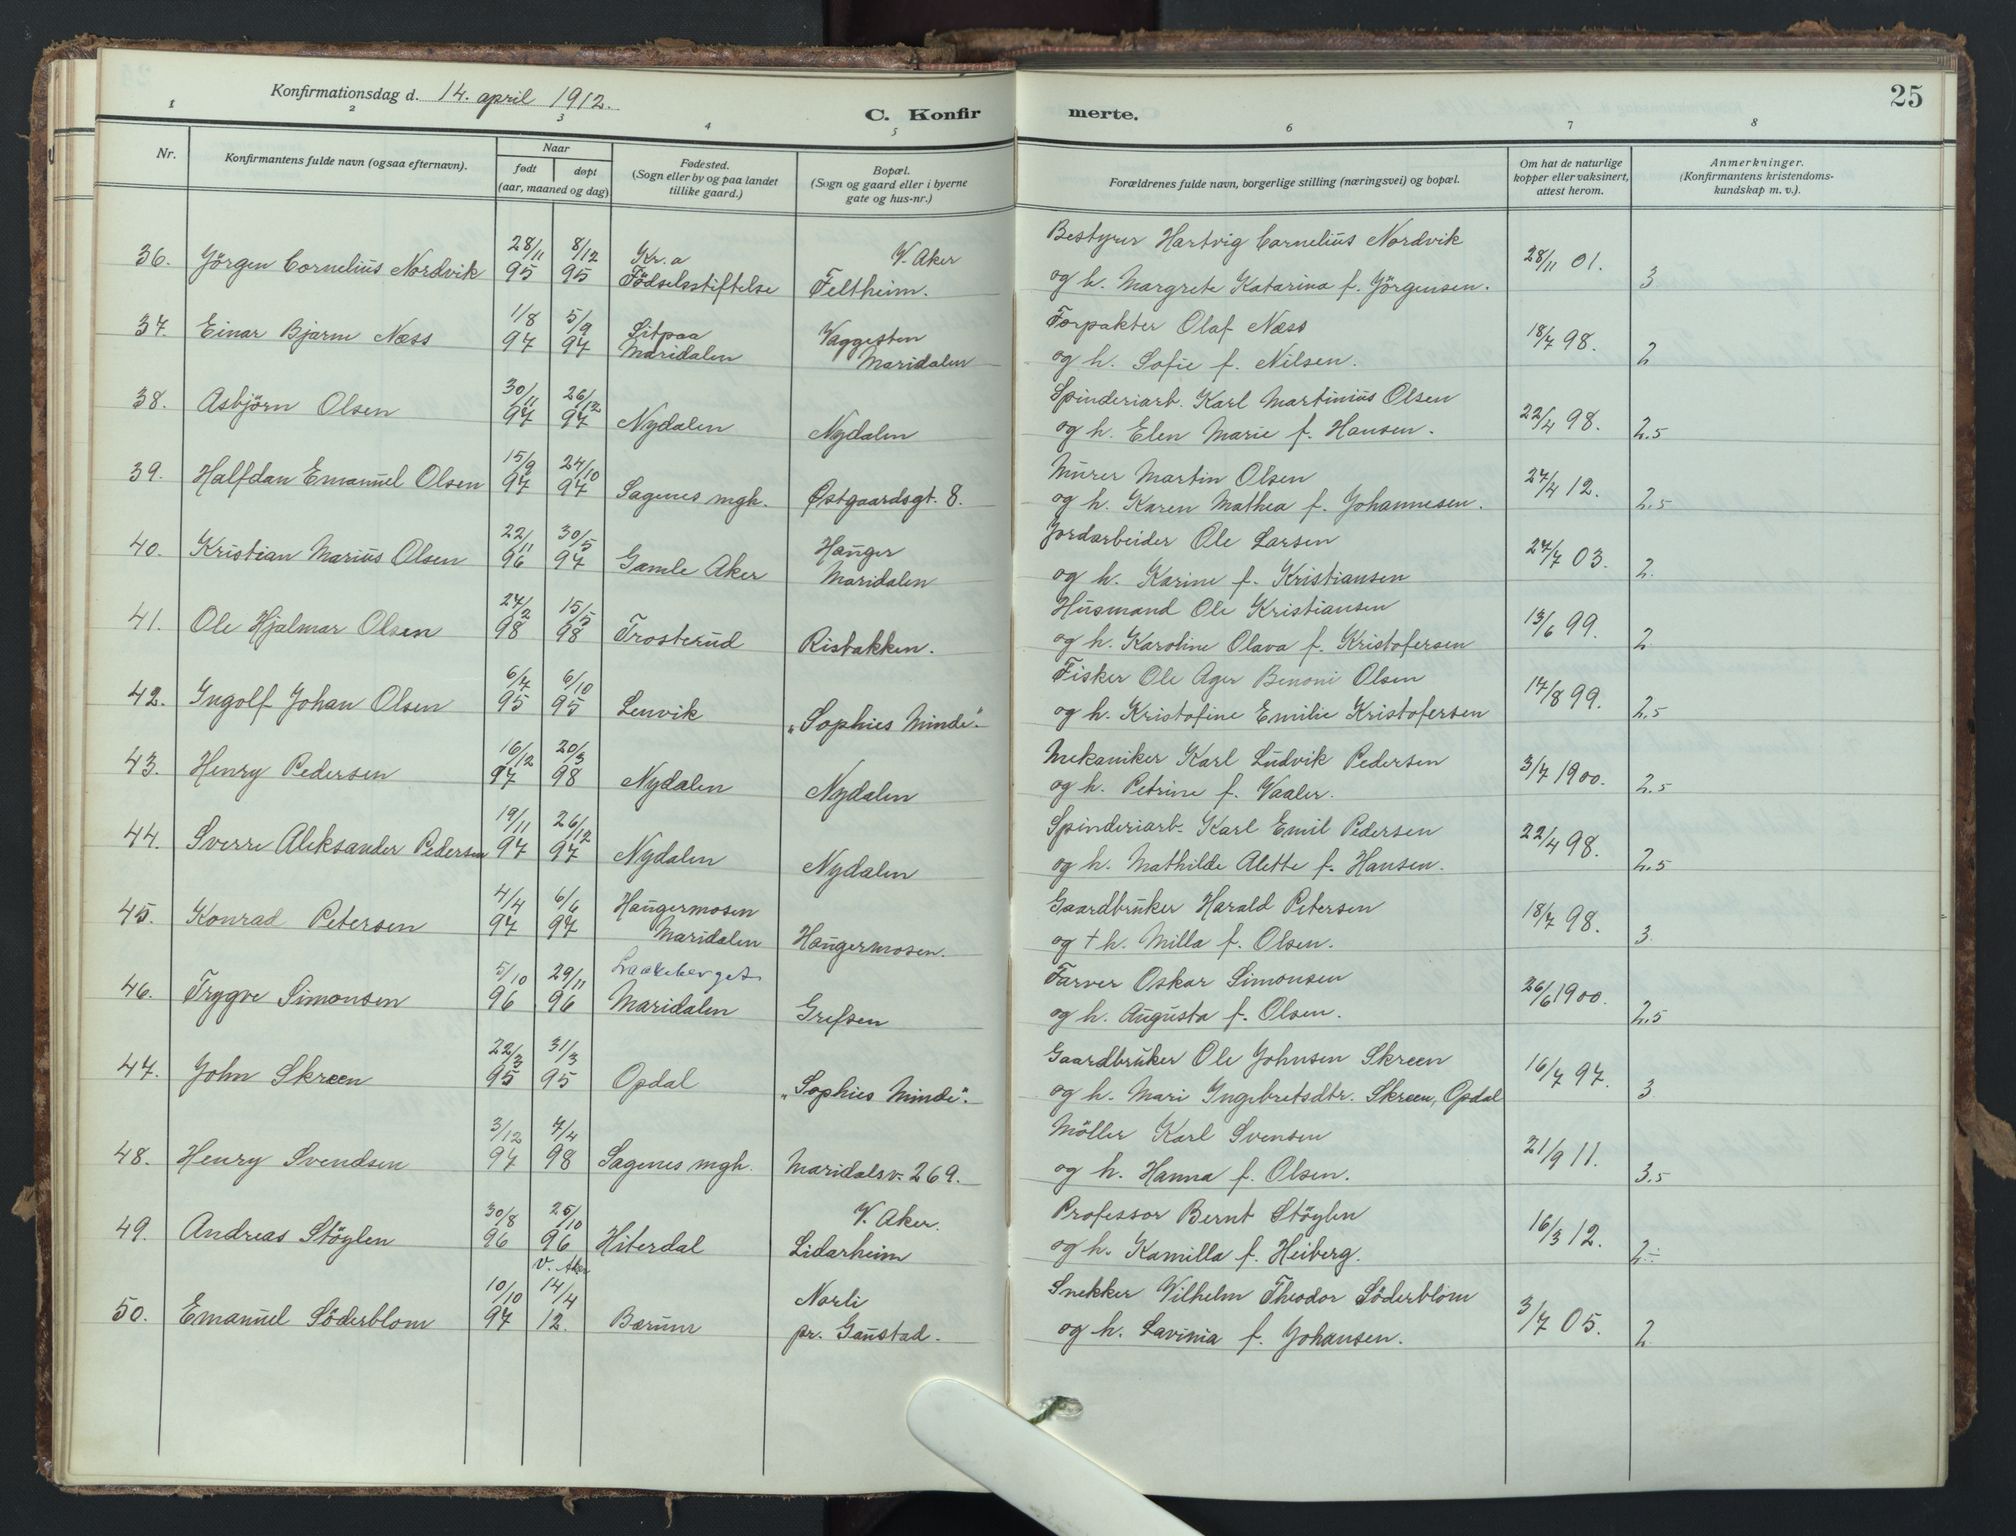 Konfirmationsdag d. 14. april 1912.
C. Konfirmerte.
25
1 2 3 4 5 6 7 8
Nr.
Konfirmantens fulde navn (ogsaa efternavn).
Naar
født døpt
(aar, maaned og dag)
Fødested.
(Sogn eller by og paa landet
tillike gaard.)
Bopæl.
(Sogn og gaard eller i byerne
gate og hus-nr.)
Forældrenes fulde navn, borgerlige stilling (næringsvei) og bopæl.
Om hat de naturlige
kopper eller vaksinert,
attest herom.
Anmerkninger.
(Konfirmantens kristendoms-
kundskap m. v.).
28/11 8/12 Kr.a V. Aker Bestyrer Hartvig Cornelius Nordvik
36. Jörgen Cornelius Nordvik 95 95 Födselsstiftelse Feltheim. og h. Margrete Katarina f. Jörgensen. 28/11 01. 3
1/8 5/9 Sitpaa Vaggesten Forpakter Olaf Næss
37. Einar Bjarne Næss 97 97 Maridalen Maridalen og h. Sofie f. Nilsen. 18/7 98. 2
30/11 26/12 Spinderiarb. Karl Martinius Olsen
38. Asbjörn Olsen 97 97 Nydalen Nydalen og h. Elen Marie f. Hansen. 22/4 98. 2,5
15/9 24/10 Murer Martin Olsen
39. Halfdan Emanuel Olsen 97 97 Sagenes mgh. Østgaardsgt. 8. og h. Karen Mathea f. Johannesen. 27/4 12. 2,5
22/11 30/5 Hauger Jordarbeider Ole Larsen
40. Kristian Marius Olsen 96 97 Gamle Aker Maridalen og h. Karine f. Kristiansen 27/7 03. 2
27/2 15/5 Husmand Ole Kristiansen
41. Ole Hjalmar Olsen 98 98 Trosterud Ristakken. og h. Karoline Olava f. Kristofersen 13/6 99. 2
6/7 6/10 Fisker Ole Ager Benoni Olsen
42. Ingolf Johan Olsen 95 95 Lenvik „Sophies Minde". og h. Kristofine Emilie Kristofersen 17/8 99. 2,5
16/12 20/3 Mekaniker Karl Ludvik Pedersen
43. Henry Pedersen 97 98 Nydalen Nydalen og h. Petrine f. Vaaler. 3/7 1900. 2,5
19/11 26/12 Spinderiarb. Karl Emil Pedersen
44. Sverre Aleksander Pedersen 97 97 Nydalen Nydalen og h. Mathilde Alette f. Hansen. 22/4 98. 2,5
4/4 6/6 Haugermosen Gaardbruker Harald Petersen
45. Konrad Petersen 97 97 Maridalen Haugermosen. og † h. Milla f. Olsen. 18/7 98. 3
5/10 29/11 Laakeberget Farver Oskar Simonsen
46. Trygve Simonsen 96 96 Maridalen Grefsen og h. Augusta f. Olsen. 26/6 1900. 2,5
22/2 31/3 Gaardbruker Ole Johnsen Skreen
47. John Skreen 95 95 Opdal „Sophies Minde". og h. Mari Ingebretsdtr. Skreen, Opdal 16/7 97. 3
3/12 7/4 Möller Karl Svensen
48. Henry Svendsen 97 98 Sagenes mgh. Maridalsv. 269. og h. Hanna f. Olsen. 21/9 11. 3,5
30/8 25/10 V. Aker. Professor Bernt Stöylen
49. Andreas Stöylen 96 96 Hiterdal Lidarheim og h. Kamilla f. Heiberg. 16/3 12. 2÷
V. Aker
10/10 14/4 Norli Snekker Vilhelm Theodor Söderblom
50. Emanuel Söderblom 97 12. Bærum pr. Gaustad. og h. Lavinia f. Johansen. 3/7 05. 2